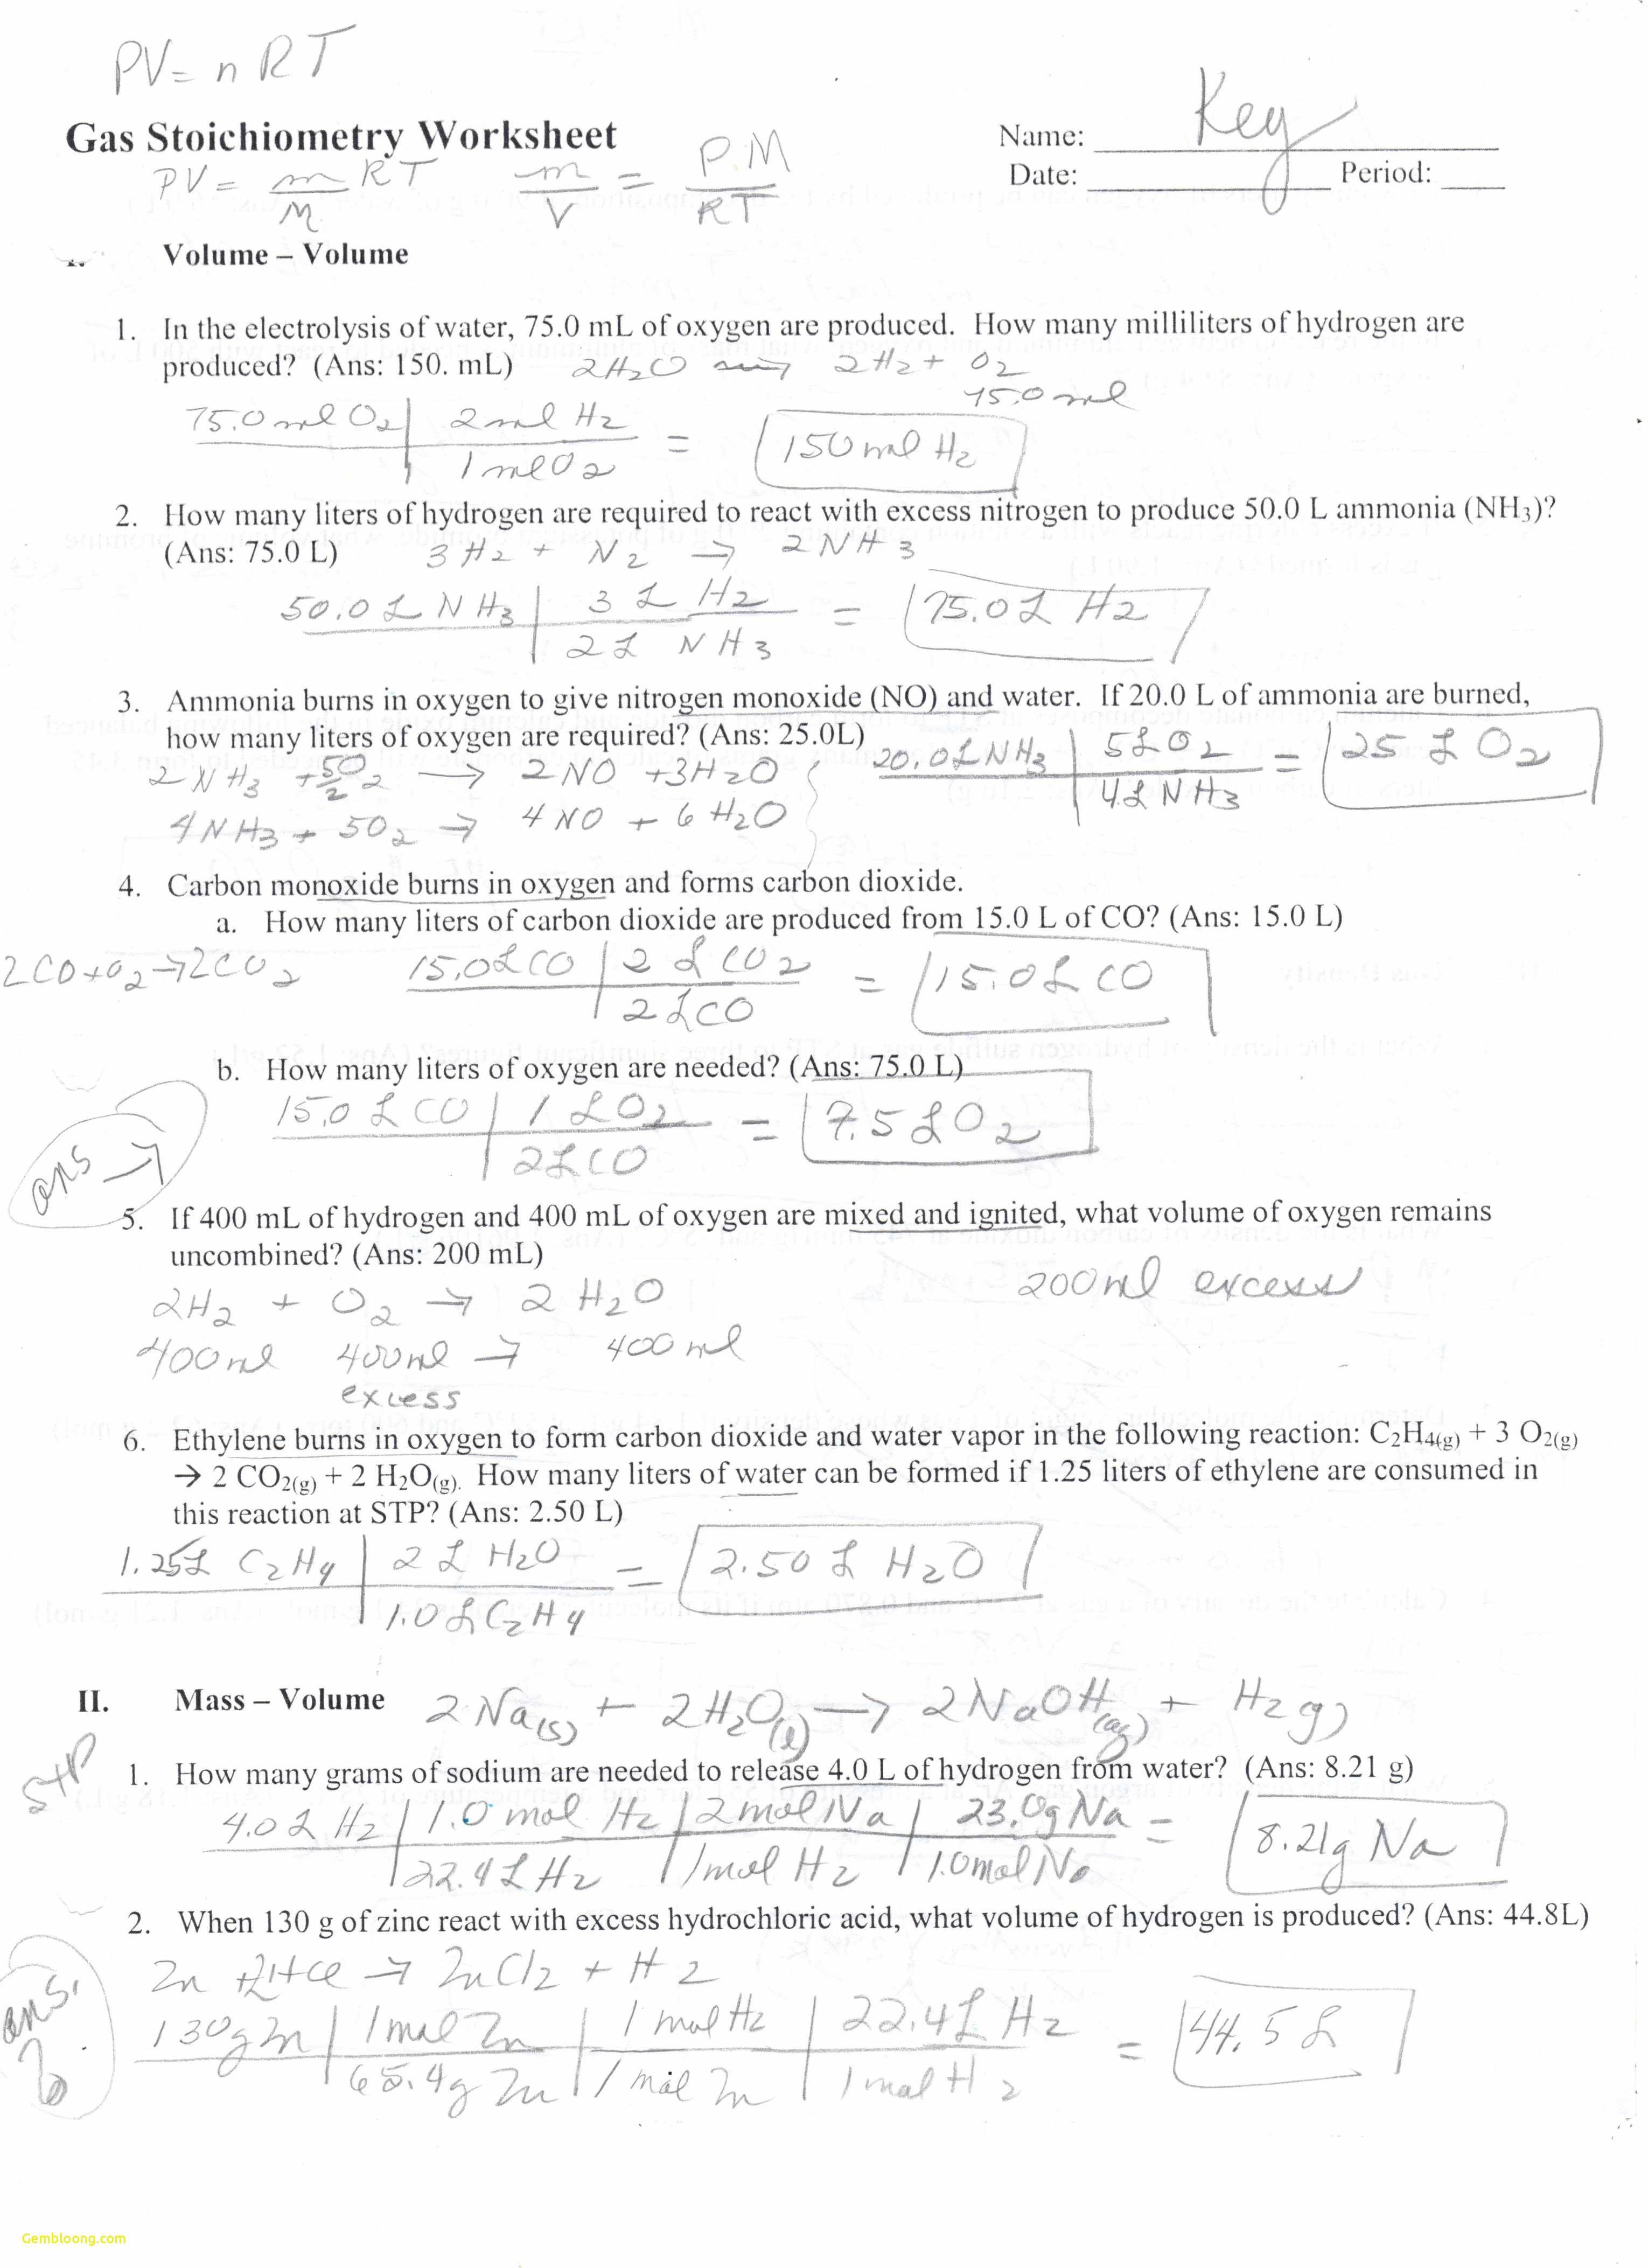 PV = nRT
Gas Stoichiometry Worksheet
Name: Key
PV = m/M RT   m/V = P.M/RT
Date: ____ Period: ____
Volume – Volume
1. In the electrolysis of water, 75.0 mL of oxygen are produced. How many milliliters of hydrogen are
produced? (Ans: 150. mL) 2H2O → 2H2 + O2
75.0 ml
75.0 ml O2 | 2 ml H2 = 150 ml H2
1 ml O2
2. How many liters of hydrogen are required to react with excess nitrogen to produce 50.0 L ammonia (NH3)?
(Ans: 75.0 L) 3H2 + N2 → 2NH3
50.0 L NH3 | 3 L H2 = 75.0 L H2
2 L NH3
3. Ammonia burns in oxygen to give nitrogen monoxide (NO) and water. If 20.0 L of ammonia are burned,
how many liters of oxygen are required? (Ans: 25.0L) 20.0 L NH3 | 5 L O2 = 25 L O2
2NH3 + 5/2 O2 → 2NO + 3H2O
4 L NH3
4NH3 + 5O2 → 4NO + 6H2O
4. Carbon monoxide burns in oxygen and forms carbon dioxide.
a. How many liters of carbon dioxide are produced from 15.0 L of CO? (Ans: 15.0 L)
2CO + O2 → 2CO2   15.0 L CO | 2 L CO2 = 15.0 L CO
2 L CO
b. How many liters of oxygen are needed? (Ans: 75.0 L)
15.0 L CO | 1 L O2 = 7.5 L O2
2 L CO
ans →
5. If 400 mL of hydrogen and 400 mL of oxygen are mixed and ignited, what volume of oxygen remains
uncombined? (Ans: 200 mL)
200 ml excess
2H2 + O2 → 2H2O
400 ml 400 ml → 400 ml
excess
6. Ethylene burns in oxygen to form carbon dioxide and water vapor in the following reaction: C2H4(g) + 3 O2(g)
→ 2 CO2(g) + 2 H2O(g). How many liters of water can be formed if 1.25 liters of ethylene are consumed in
this reaction at STP? (Ans: 2.50 L)
1.25 L C2H4 | 2 L H2O = 2.50 L H2O
1.0 L C2H4
II. Mass – Volume 2Na(s) + 2H2O(l) → 2NaOH(aq) + H2(g)
STP
1. How many grams of sodium are needed to release 4.0 L of hydrogen from water? (Ans: 8.21 g)
4.0 L H2 | 1.0 mol H2 | 2 mol Na | 23.0g Na = 8.21g Na
22.4 L H2 | 1 mol H2 | 1.0 mol Na
2. When 130 g of zinc react with excess hydrochloric acid, what volume of hydrogen is produced? (Ans: 44.8L)
Zn + 2HCl → ZnCl2 + H2
ans.
130g Zn | 1 mol Zn | 1 mol H2 | 22.4 L H2 = 44.5 L
65.4g Zn | 1 mol Zn | 1 mol H2
Gembloong.com